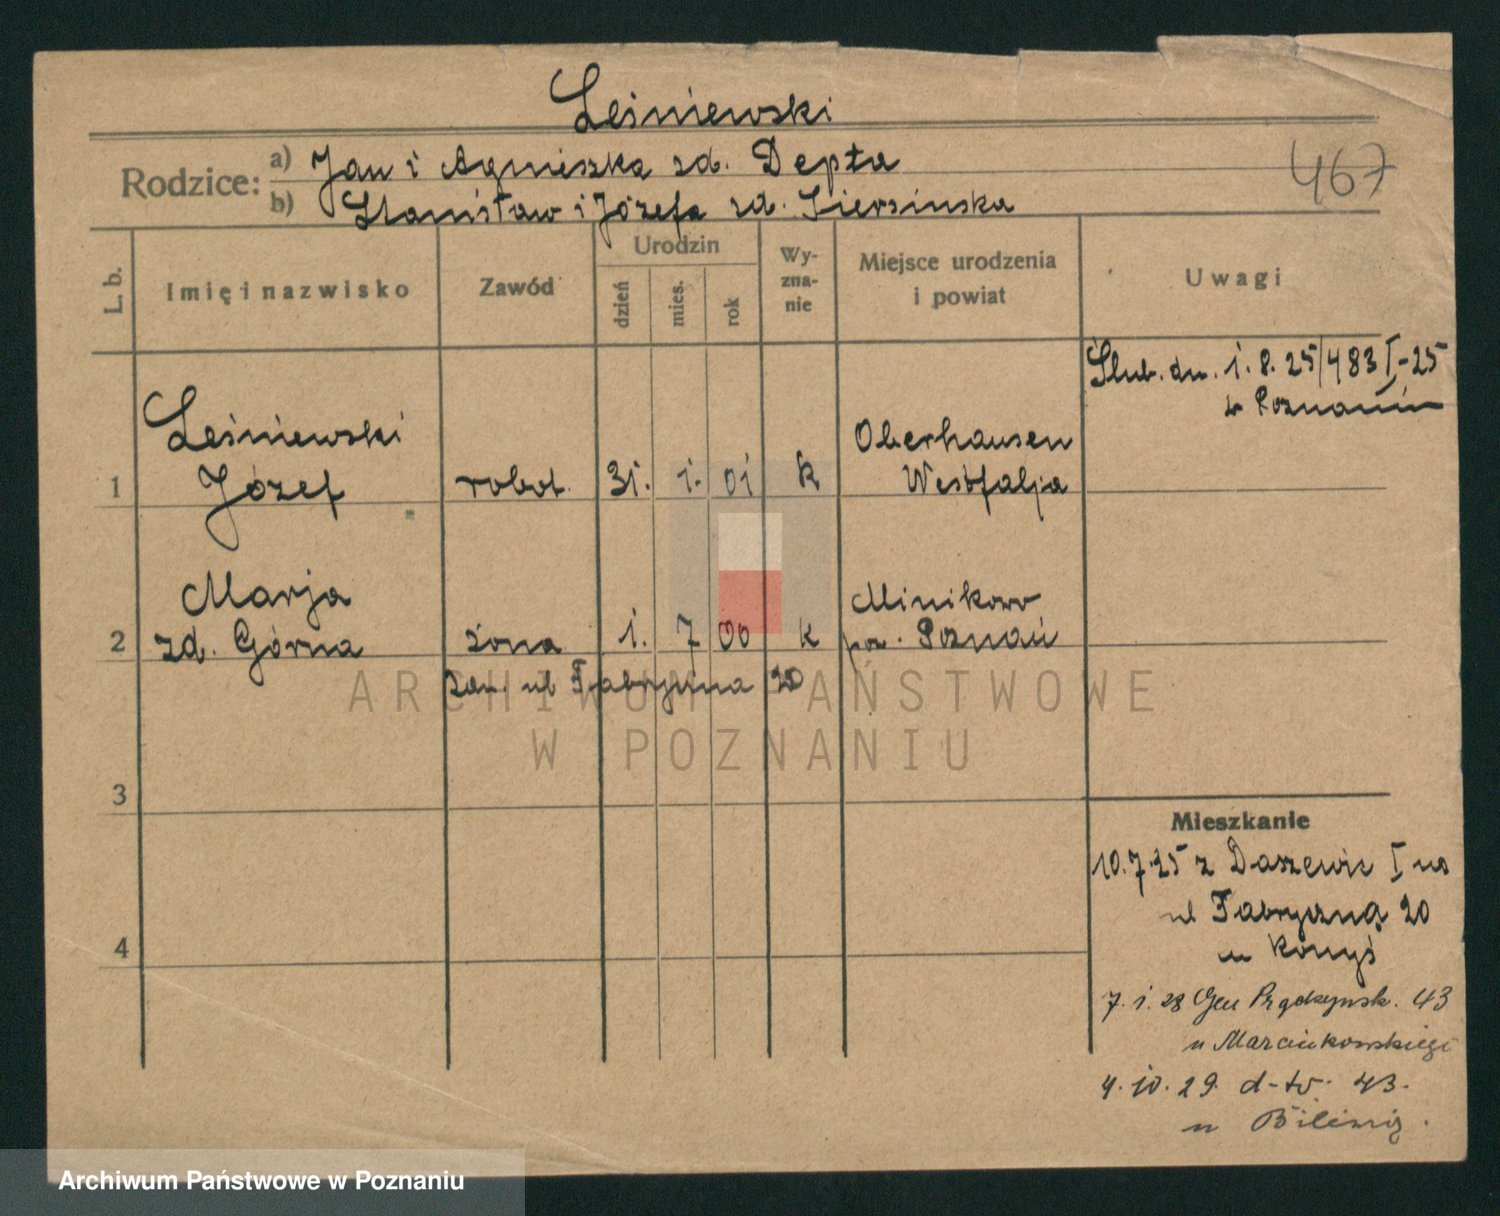 Leśniewski
467
Rodzice: a) Jan i Agnieszka zd. Depta
b) Stanisław i Józefa zd. Siersinska
L. b.
Imię i nazwisko
Zawód
Urodzin
dzień
mies.
rok
Wy-
zna-
nie
Miejsce urodzenia
i powiat
Uwagi
Ślub. dn. 1. 8. 25/483 I-25
w Poznaniu
Leśniewski Oberhausen
1 Józef robot. 31. 1. 01 k Westfalja
Marja Minikowo
2 zd. Górna żona 1. 7 00 k pow. Poznań
zam. ul Fabryczna 20
ARCHIWUM PAŃSTWOWE
W POZNANIU
3
4
Mieszkanie
10.7.25 z Daszewic I na
ul Fabryczną 20
u
7. 1. 28 Gen Prądzynsk. 43
u Marcinkowskiego
4. 10. 29 d-to 43.
u
Archiwum Państwowe w Poznaniu